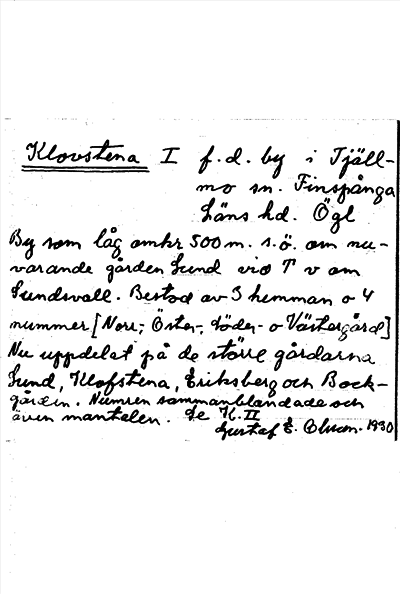 Klovstena I f.d. by i Tjäll-
mo sn. Finspånga
läns hd. Ögl
By som låg omkr 500 m. s.ö. om nu-
varande gården Lund vid T v om
Lundsvall. Bestod av 3 hemman o 4
nummer [Norr-, Öster-, Söder- o Västergård]
Nu uppdelat på de större gårdarna
Lund, Klofstena, Eriksberg och Bock-
gården. Numren sammanblandade och
även mantalen. Se K. II
Gustaf E. Olsson. 1930